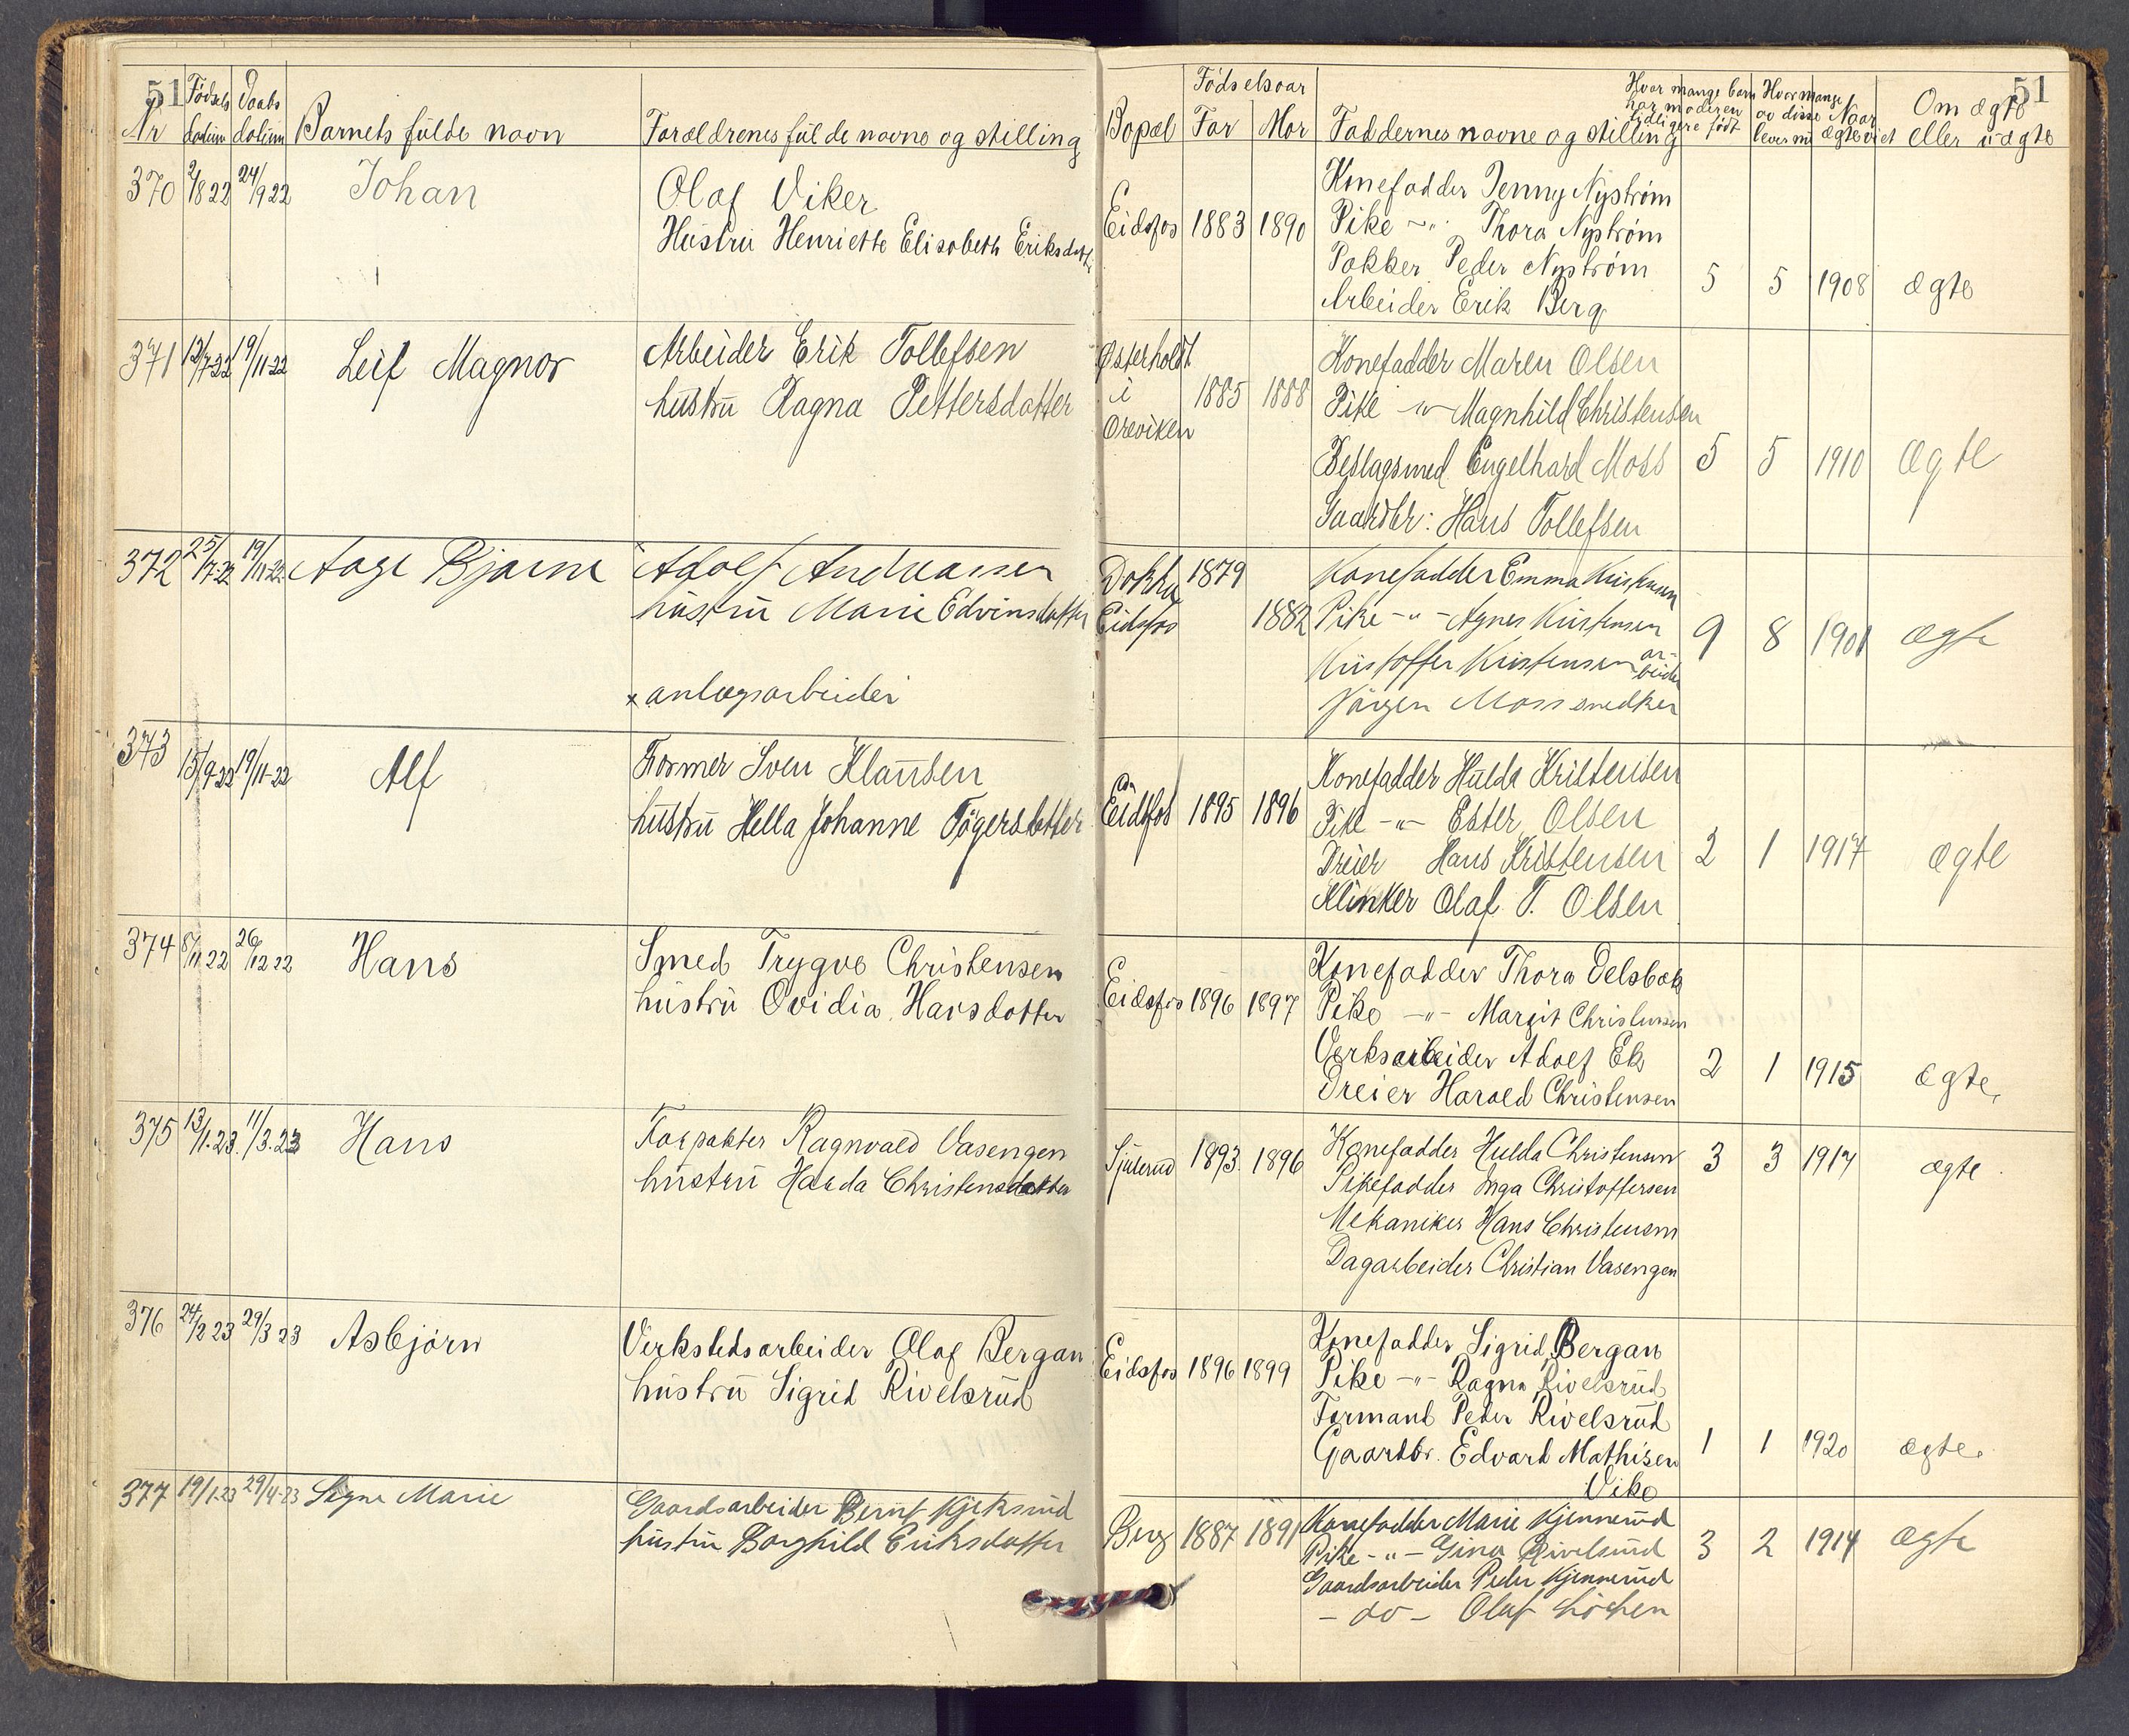 51
Nr Fødsels datum Daabs datum Barnets fulde navn Forældrenes fulde navne og stilling
370 2/8 22 24/9 22 Johan Olaf Viker
Hustru Henriette Elisabeth Eriksdatt.
371 12/7-22 19/11-22 Leif Magnor Arbeider Erik Tollefsen
hustru Ragna Pettersdatter
372 25/7-22 19/11-22 Aage Bjarne × Adolf Andreassen
hustru Marie Edvinsdatter
× anlægsarbeider
373 15/9-22 19/11-22 Alf Former Sven Klausen
hustru Hella Johanne
374 8/11 22 26/12 22 Hans Smed Trygve Christensen
hustru Ovidia Hansdatter
375 13/1.23. 11/3.23 Hans Forpakter Ragnvald Vasengen
hustru Harda Christensdatter
376 24/2 23 29/3 23 Asbjørn Verkstedsarbeider Olaf Bergan
hustru Sigrid Rivelsrud
377 19/1-23 29/4-23 Signe Marie Gaardsarbeider Bernt Kjeksrud
hustru Borghild Eriksdatter
51
Bopæl Fødselsaar Far Mor Faddernes navne og stilling Hvor mange barn har moderen tidligere født Hvor mange av disse lever nu Naar ægteviet Om ægte eller uægte
Konefadder Jenny Nyström
Eidsfos 1883 1890 Pike -"- Thora Nyström
Pakker Peder Nyström
Arbeider Erik Berg 5 5 1908 ægte
Østerholdt Konefadder Maren Olsen
i 1885 1888 Pike -"- Magnhild Christensen
Oreviken
Beslagsmed Engelhard Moss 5 5 1910 Ægte
Gaardbr: Hans Tollefsen
Dokka 1879 Konefadder Emma Kristensen
Eidsfos 1882 Pike -"- Agnes Kristensen 9 8 1901 ægte
Kristoffer Kristensen arbeider
Jørgen Moss snedker
Konefadder Hulda Kristensen
Eidsfos 1895 1896 Pike -"- Ester Olsen
Dreier Hans Kristensen 2 1 1917 ægte
Klinker Olaf T. Olsen
Konefadder Thora Delsbæk
Eidsfos 1896 1897 Pike -"- Margit Christensen
Verksarbeider Adolf Ek 2 1 1915 ægte
Dreier Harald Christensen
Sjulerud 1893 1896 Konefadder Hulda Christensen 3 3 1917 ægte
Pikefadder Inga Christoffersen
Mekaniker Hans Christensen
Dagarbeider Christian Vasengen
Konefadder Sigrid Bergan
Eidsfos 1896 1899 Pike -"- Ragna Rivelsrud
Formand Peder Rivelsrud
Gaardbr. Edvard Mathisen 1 1 1920 ægte.
Vike
Berg 1887 1891 Konefadder Marie Kjennerud
Pike -"- Gina Rivelsrud 3 2 1914 Ægte
Gaardsarbeider Peder Kjennerud
- do - Olaf